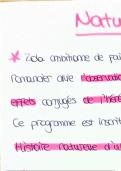 Natu
* Zola ambitionne de fai
romancier avec l'observatio
effets conjugués de l'héré
Ce programme est inscrit
Histoire naturelle d'u